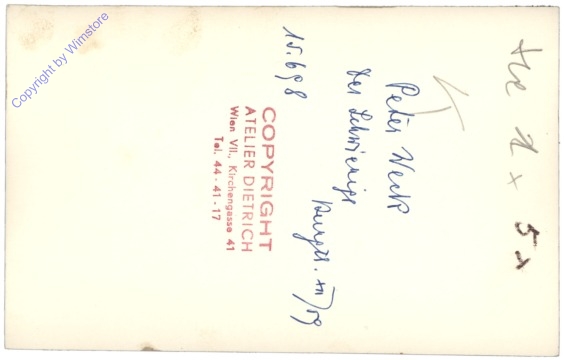 Copyright by Wimstore
15.698
Peter Weck
Der Schwierige
Burgth. XII/59
COPYRIGHT
ATELIER DIETRICH
Wien VII., Kirchengasse 41
Tel. 44-41-17
x 5 x